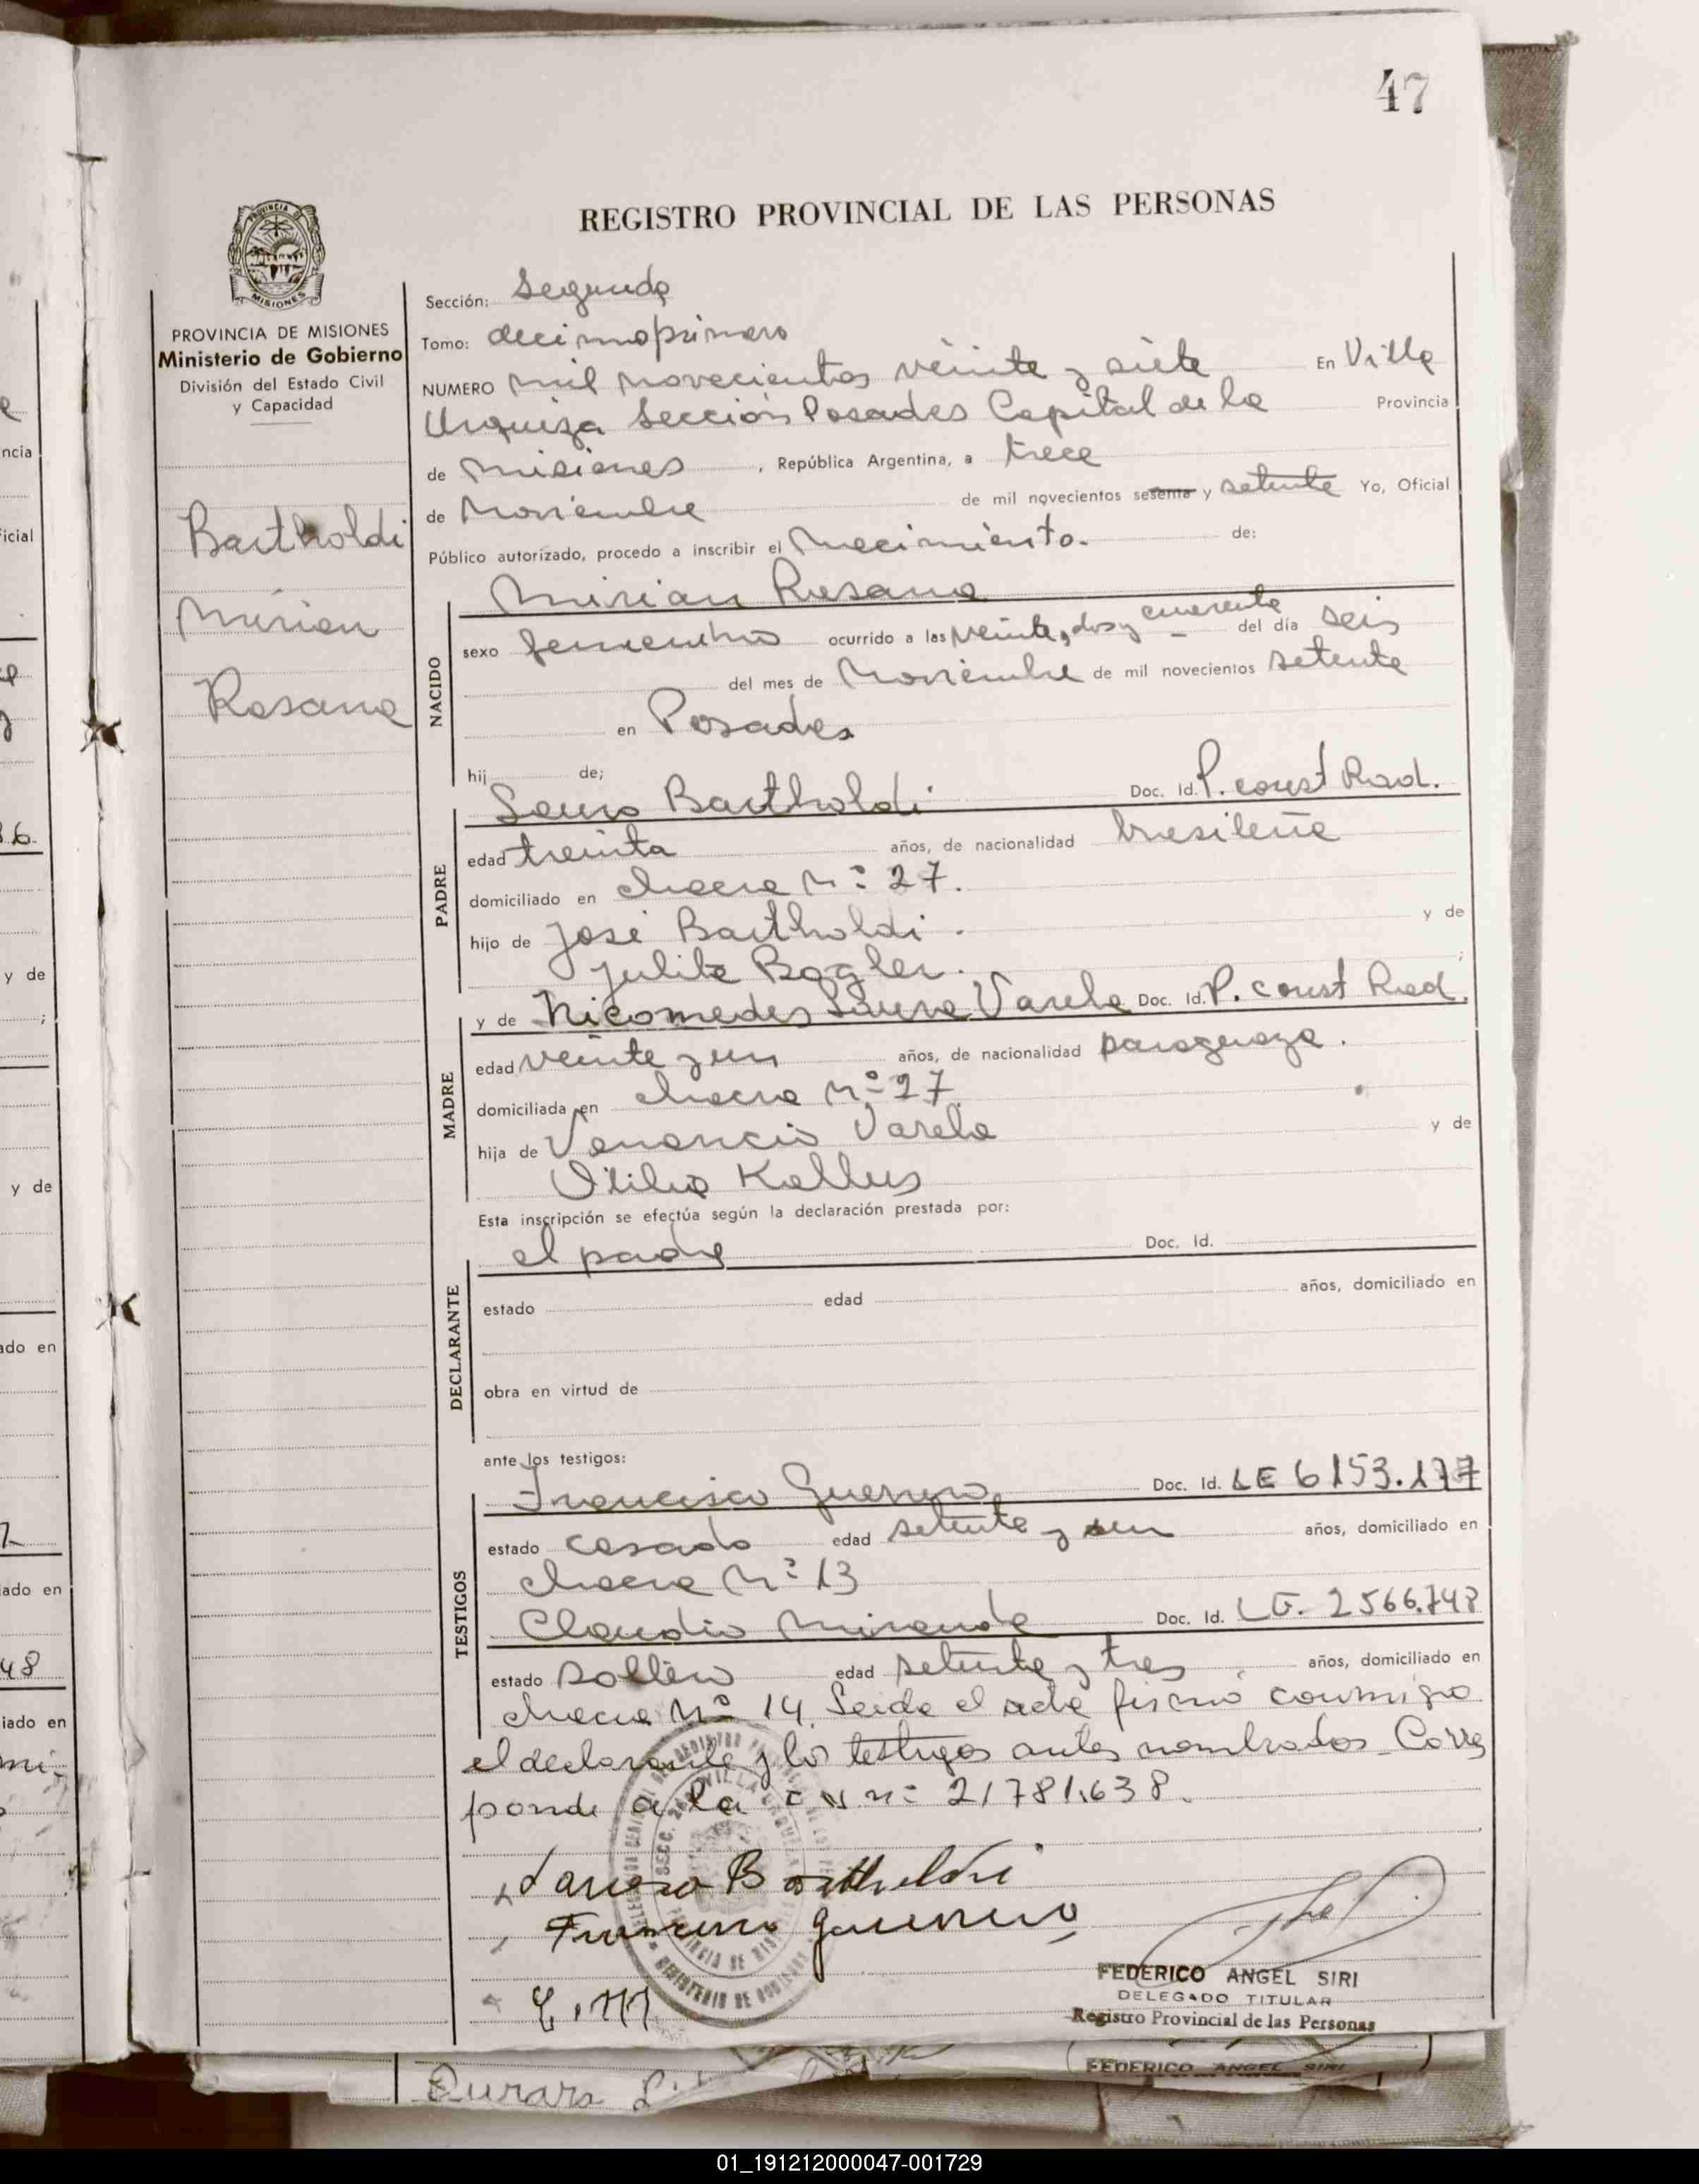 47
REGISTRO PROVINCIAL DE LAS PERSONAS
PROVINCIA DE MISIONES
Ministerio de Gobierno
División del Estado Civil
y Capacidad
Bartholdi
Mirian
Rosana
Sección: Segunda
Tomo: decimoprimero
NUMERO mil novecientos veinte y siete En Villa
Urquiza Sección Posadas Capital de la Provincia
de Misiones, República Argentina, a trece
de Noviembre de mil novecientos sesenta y setenta Yo, Oficial
Público autorizado, procedo a inscribir el Nacimiento. de:
Mirian Rosana
NACIDO
sexo femenino ocurrido a las veinte y dos y cuarenta del día seis
del mes de Noviembre de mil novecientos setenta
en Posadas
hij de;
PADRE
Bartholdi Doc. Id. P. const Rad.
edad treinta años, de nacionalidad brasileña
domiciliado en chacra Nº 27.
hijo de José Bartholdi. y de
Julita Bogler. ;
MADRE
y de Nicomedes Varela Doc. Id. P. const Rad.
edad veinte y un años, de nacionalidad paraguaya.
domiciliada en chacra Nº 27
hija de Venancio Varela y de
Otilia Kallus
Esta inscripción se efectúa según la declaración prestada por:
el padre Doc. Id.
DECLARANTE
estado edad años, domiciliado en
obra en virtud de
ante los testigos:
TESTIGOS
Francisco Guerrero Doc. Id. LE 6153.177
estado casado edad setenta y un años, domiciliado en
chacra Nº 13
Claudio Miranda Doc. Id. LE. 2566.748
estado soltero edad setenta y tres, años, domiciliado en
chacra Nº 14. Leida el acta firmó conmigo
el declarante y los testigos antes nombrados. Corres
ponde a la nº 21781.638.
Bartholdi
Francisco Guerrero
C. M
FEDERICO ANGEL SIRI
DELEGADO TITULAR
Registro Provincial de las Personas
FEDERICO ANGEL SIRI
01_191212000047-001729